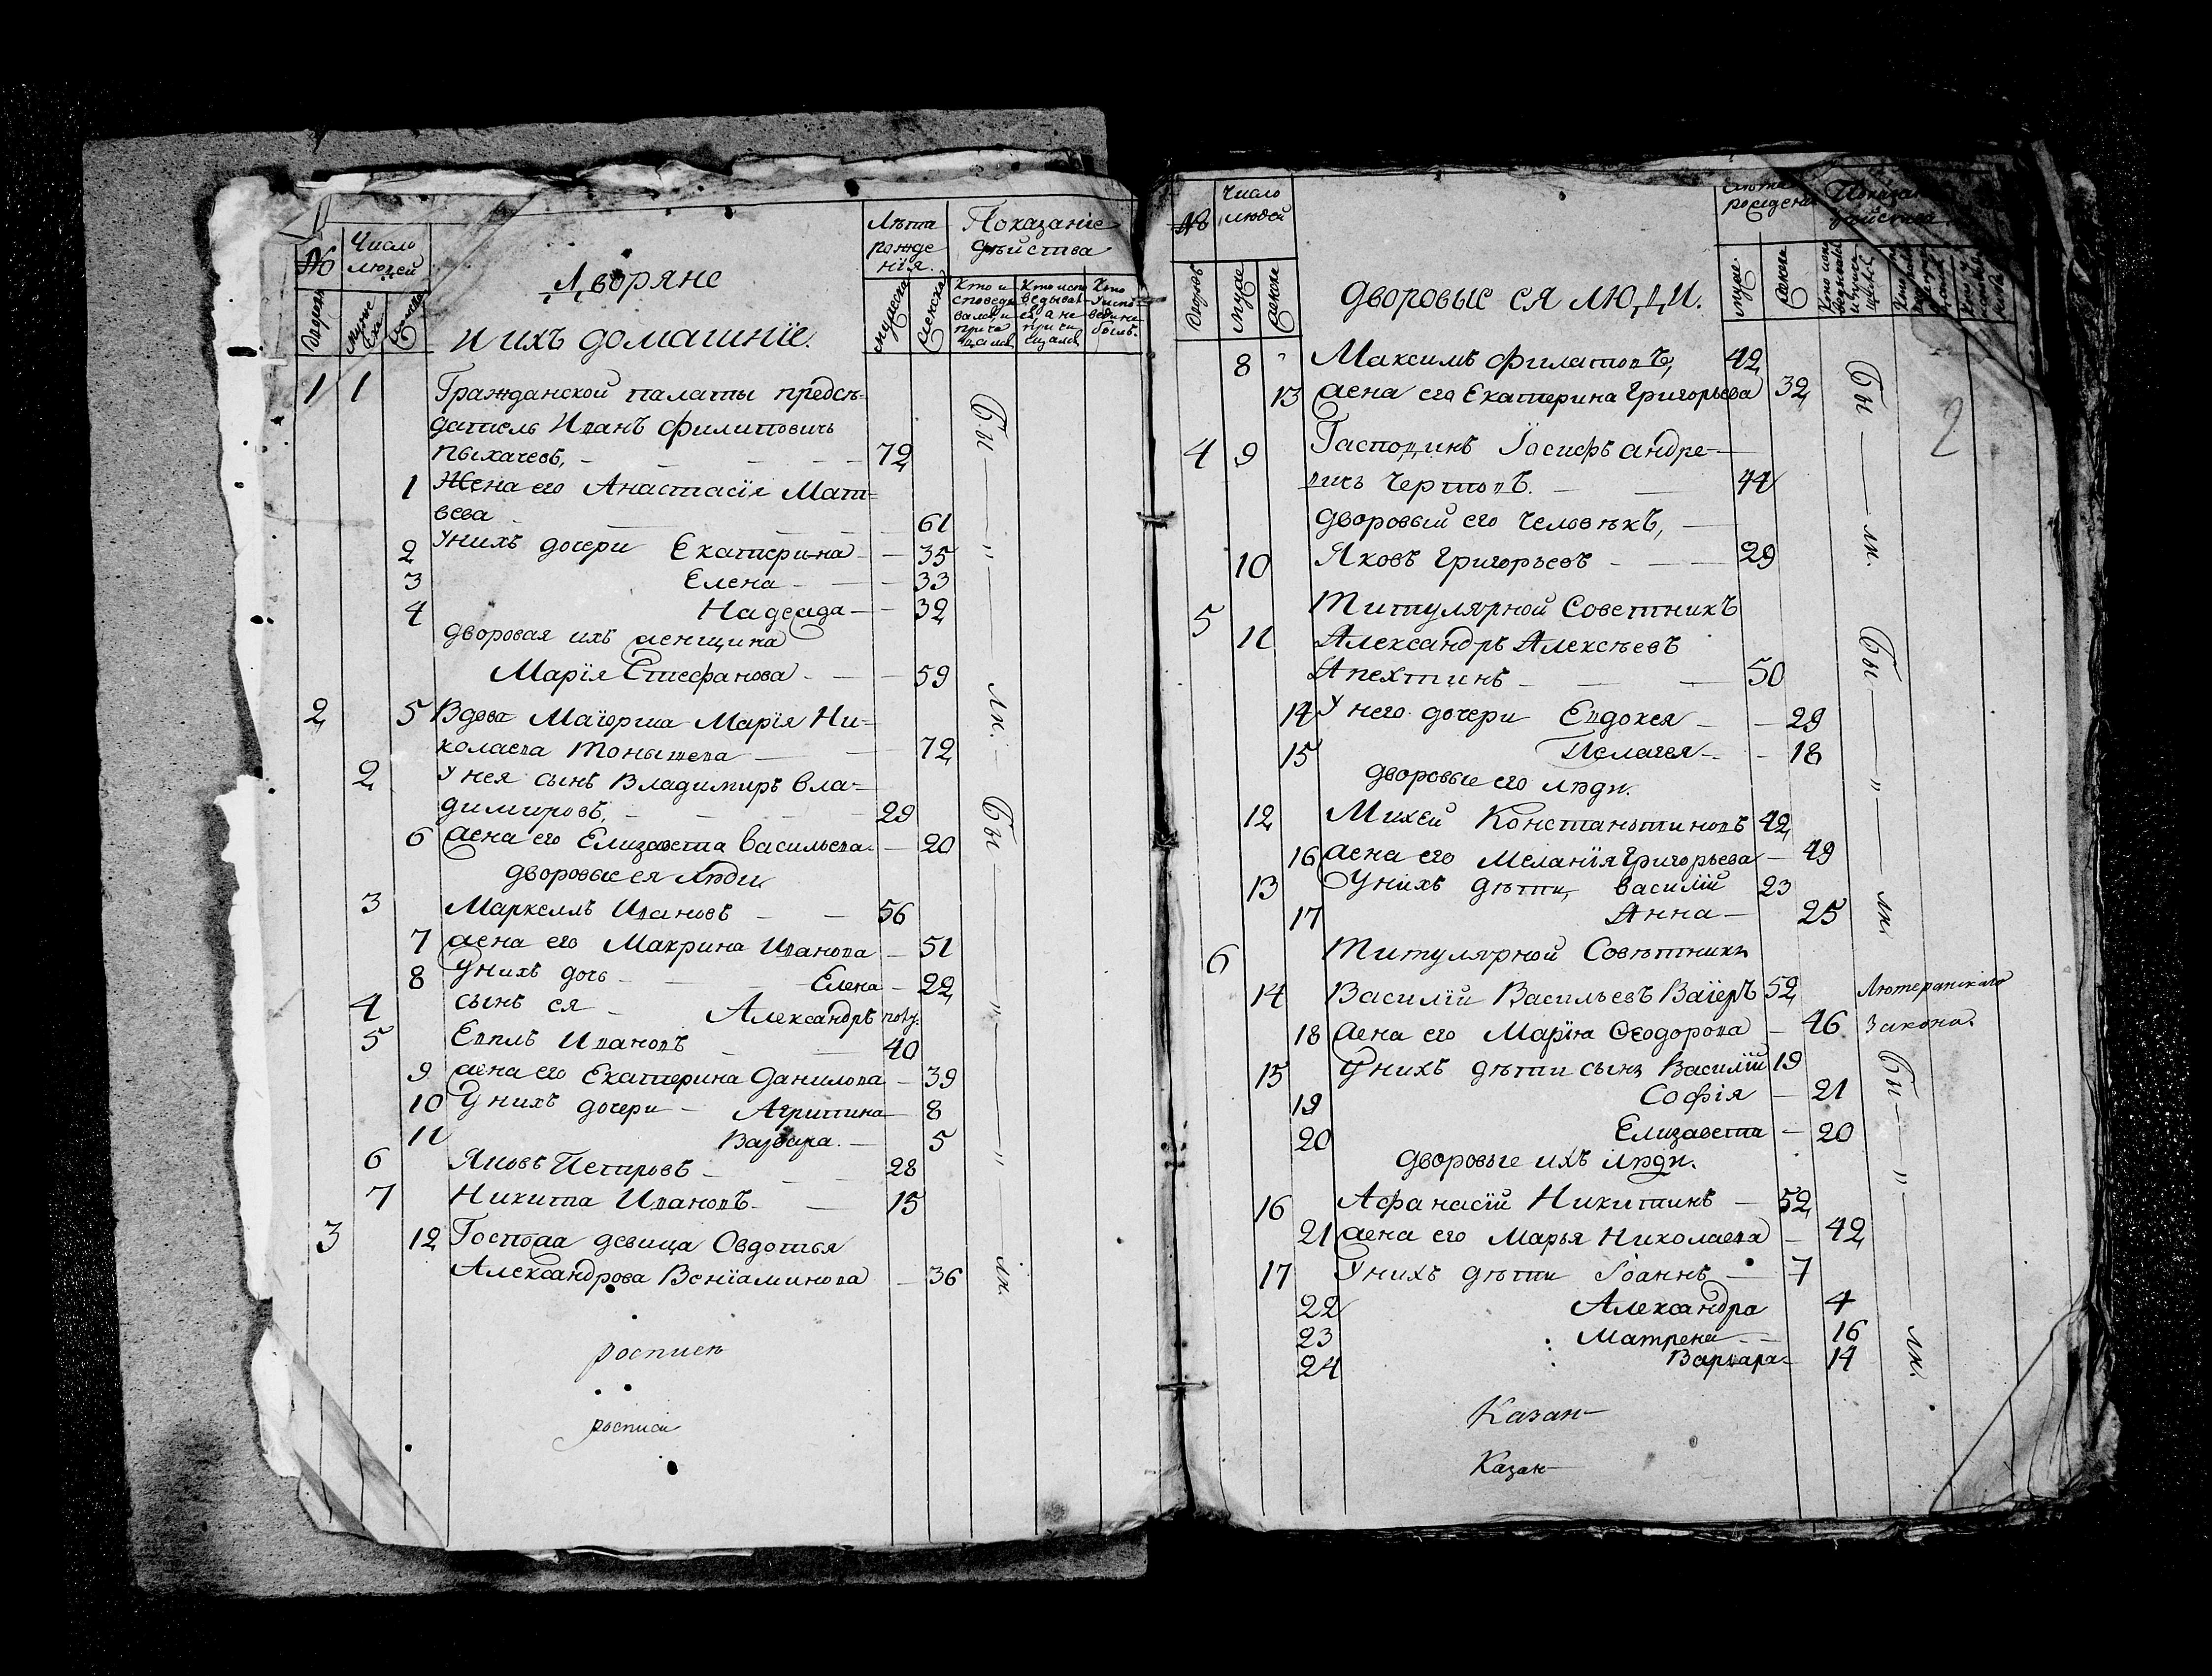 № Число людей
Дворовъ
Мужеска
Женска
Дворяне
и ихъ домашнїе.
Лѣта рожде нїя.
мужеска
женска
Показанїе дѣйства
Кто и споведы вался и прича щался
Кто испо ведывал ся, а не причи щался
Кто Уиспо веди не былъ.
1 1 Гражданской палаты предсѣ=
датель Иванъ Филиповичь
Пыхачевъ, 72
1 Жена его Анастасїя Мат=
веева 61
2 У нихъ дочери Екатерина 35
3 Елена 33
4 Надежда 32
дворовая ихъ женщина
Марїя Стефанова 59
2 5 Вдова Маїорша Марїя Ни=
колаева 72
2 У нея сынъ Владимиръ Вла=
димировъ, 29
6 жена его Елизавета Васильева 20
дворовые ея люди
3 Маркеллъ Ивановъ 56
7 жена его Макрина Иванова 51
8 У нихъ дочь Елена 22
4 сынъ ея Александръ полу.
5 Евплъ Ивановъ 40
9 жена его Екатерина Данилова 39
10 У нихъ дочери Агрипина 8
11 Варвара. 5
6 Яковъ Петровъ 28
7 Никита Ивановъ 15
3 12 Госпожа девица Овдотья
Александрова Венїаминова 36
Бы " ли.
Бы " " ли.
росписи
росписи
№ Число людей
Дворовъ
муже
женск
дворовые ея люди.
Лѣта рожденї
муже
женск
2
8 Максимъ Филатовъ, 42
13 жена его Екатерина Григорьева 32
4 9 Гасподинъ Їосифъ Андре-
вичъ Чертовъ. 44
дворовый его человѣкъ,
10 Яковъ Григорьевъ 29
5 Титулярной Советникъ
11 Александръ Алексѣевъ
Апехтинъ 50
14 У него дочери Евдокея 29
15 Пелагея 18
дворовые его люди.
12 Михей Константиновъ 42
16 жена его Меланїя Григорьева 49
13 У нихъ дѣти, Василїй 23
17 Анна 25
6 Титулярной Совѣтникъ
14 Василїй Васильевъ Ваїеръ 52 Лютеранскаго
18 жена его Марїя Ѳеодорова 46 закона.
15 У нихъ дѣти сынъ Василїй 19
19 Софїя 21
20 Елизавета 20
дворовые ихъ люди.
16 Афанасїй Никитинъ 52
21 жена его Марья Николаева 42
17 У нихъ дѣти Їоаннъ 7
22 Александра 4
23 Матрена 16
24 Варвара 14
Бы ли.
Бы " ли.
Бы " ли.
Казан
Казан